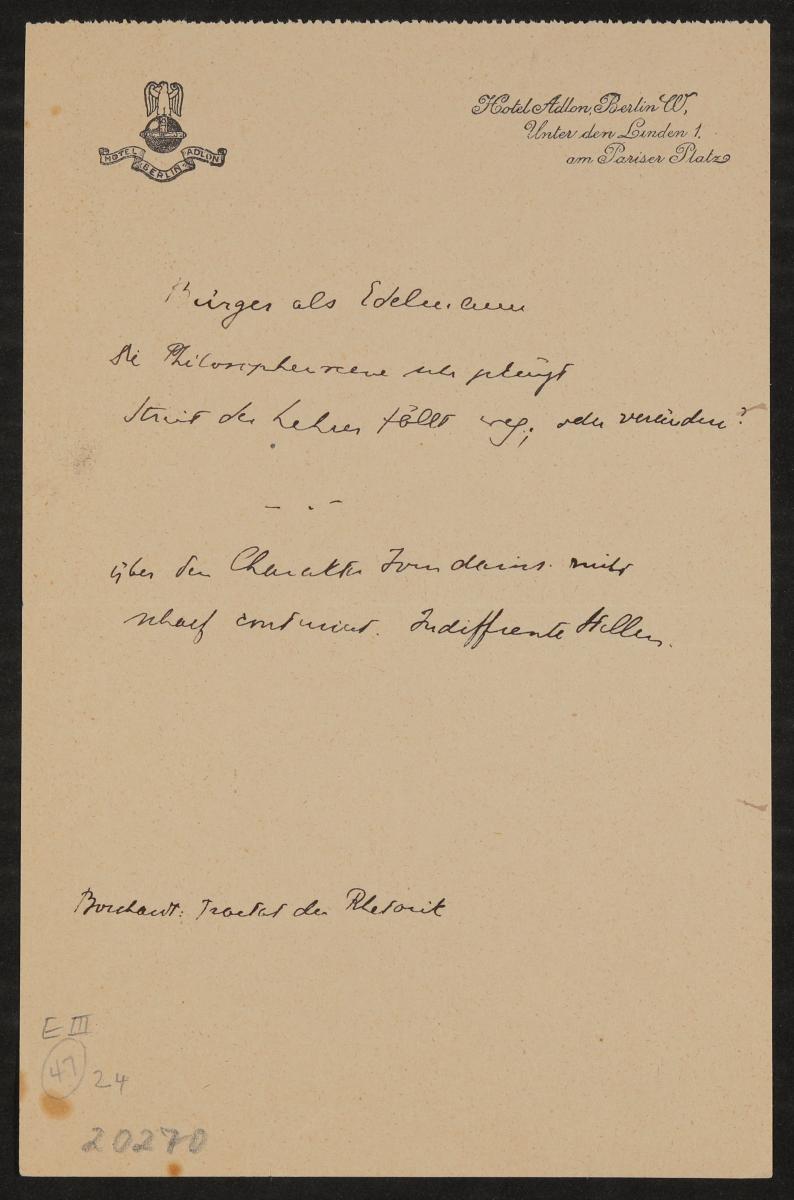 HOTEL ADLON
BERLIN
Hotel Adlon, Berlin W,
Unter den Linden 1.
am Pariser Platz
Bürger als Edelmann
Die Philosophenscene sehr
Streit der Lehrer fällt weg; oder verändern?
— . —
über den Charakter Jourdains. nicht
scharf conturiert. Indiffrente Stellen.
Borchardt: Tractat der Rhetorik
E III
47 24
20270